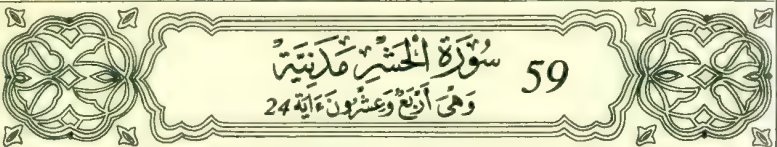 سُورَةُ الْحَشْرِ مَدَنِيَّة 59
وَهِىَ أَرْبَعٌ وَعِشْرُونَ ءَايَة 24